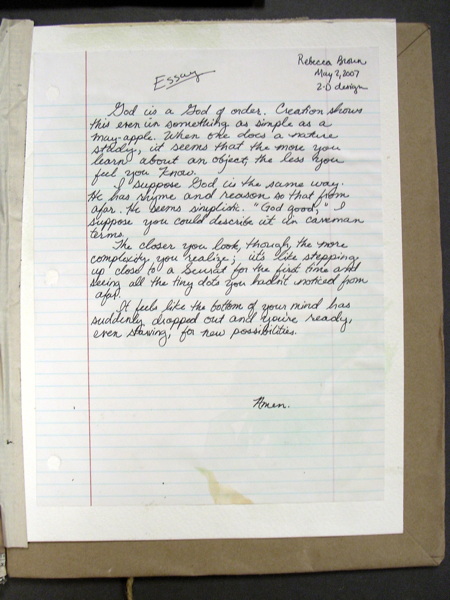 Rebecca Brown
May 2, 2007
2-D design
Essay
God is a God of order. Creation shows
this even in something as simple as a
may-apple. When one does a nature
study, it seems that the more you
learn about an object, the less you
feel you know.
I suppose God is the same way.
He has rhyme and reason so that from
afar He seems simplistic. "God good," I
suppose you could describe it in caveman
terms.
The closer you look, though, the more
complexity you realize; it's like stepping
up close to a Seurat for the first time and
seeing all the tiny dots you hadn't noticed from
afar.
It feels like the bottom of your mind has
suddenly dropped out and you're ready,
even starving, for new possibilities.
Amen.